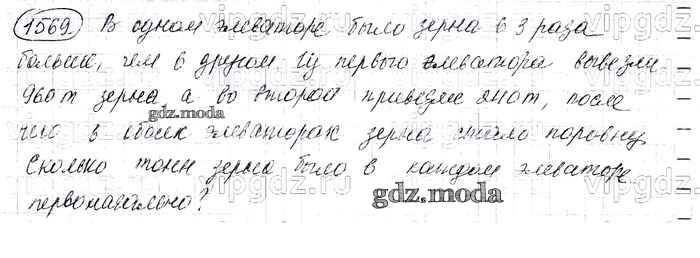 1569 В одном элеваторе было зерна в 3 раза
больше, чем в другом. Из первого элеватора вывезли
960т зерна а во второй привезли 240т, после
чего в обоих элеваторах зерна стало поровну
Сколько тонн зерна было в каждом элеваторе
первоначально?
gdz.moda
gdz.moda
vipgdz.ru